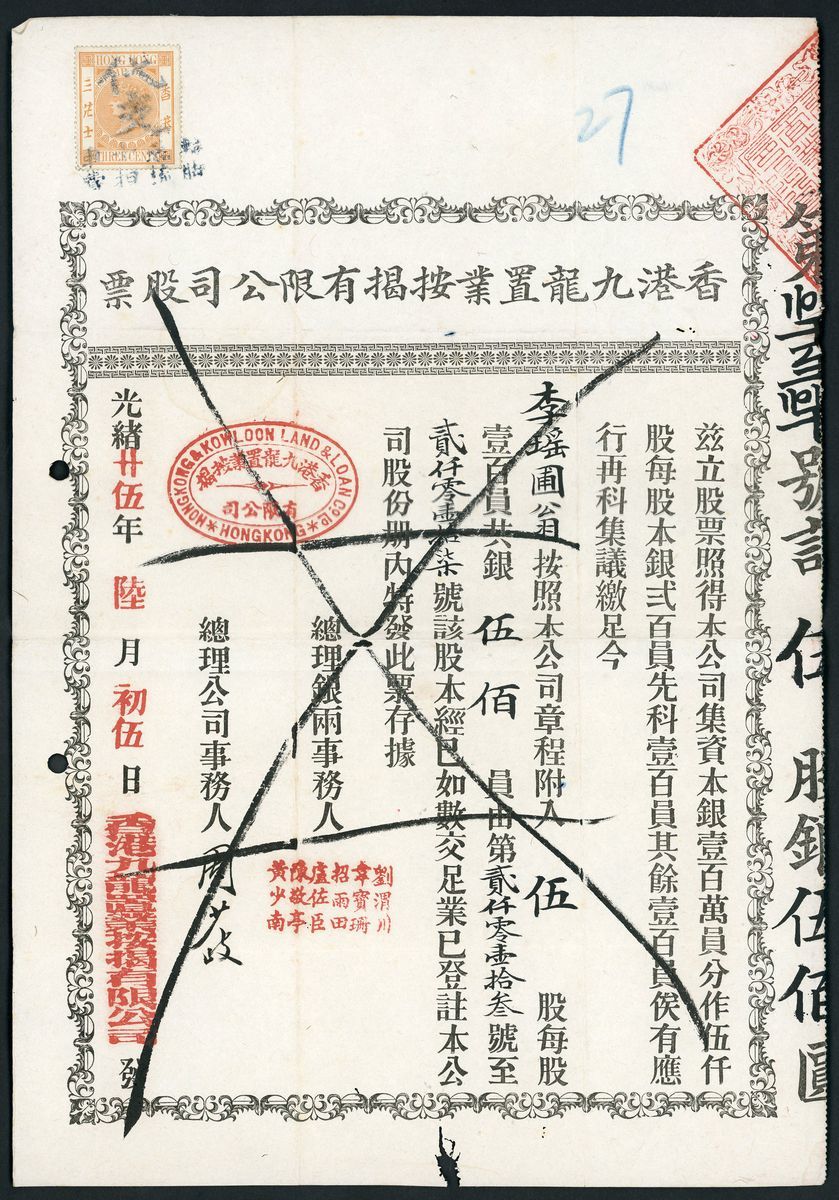 HONG KONG
香港
三先士
THREE CENTS
27
香港九龍置業按揭有限公司股票
號計 伍 股銀伍佰圓
茲立股票照得本公司集資本銀壹百萬員分作伍仟
股每股本銀弍百員先科壹百員其餘壹百員俟有應
行冉科集議繳足今
李瑶圃翁按照本公司章程附入 伍 股每股
壹百員共銀 伍佰 員由第貳仟零壹拾叁號至
貳仟零壹拾柒號該股本經已如數交足業已登註本公
司股份册內特發此票存據
總理銀兩事務人
劉渭川
韋寶珊
招雨田
盧佐臣
陳敬亭
黃少南
總理公司事務人 周
HONGKONG & KOWLOON LAND & LOAN CO. LD
香港九龍置業按揭
公
有限公司
HONGKONG
光緒廿伍年 陸 月 初伍 日 香港九龍置業按揭有限公司 發